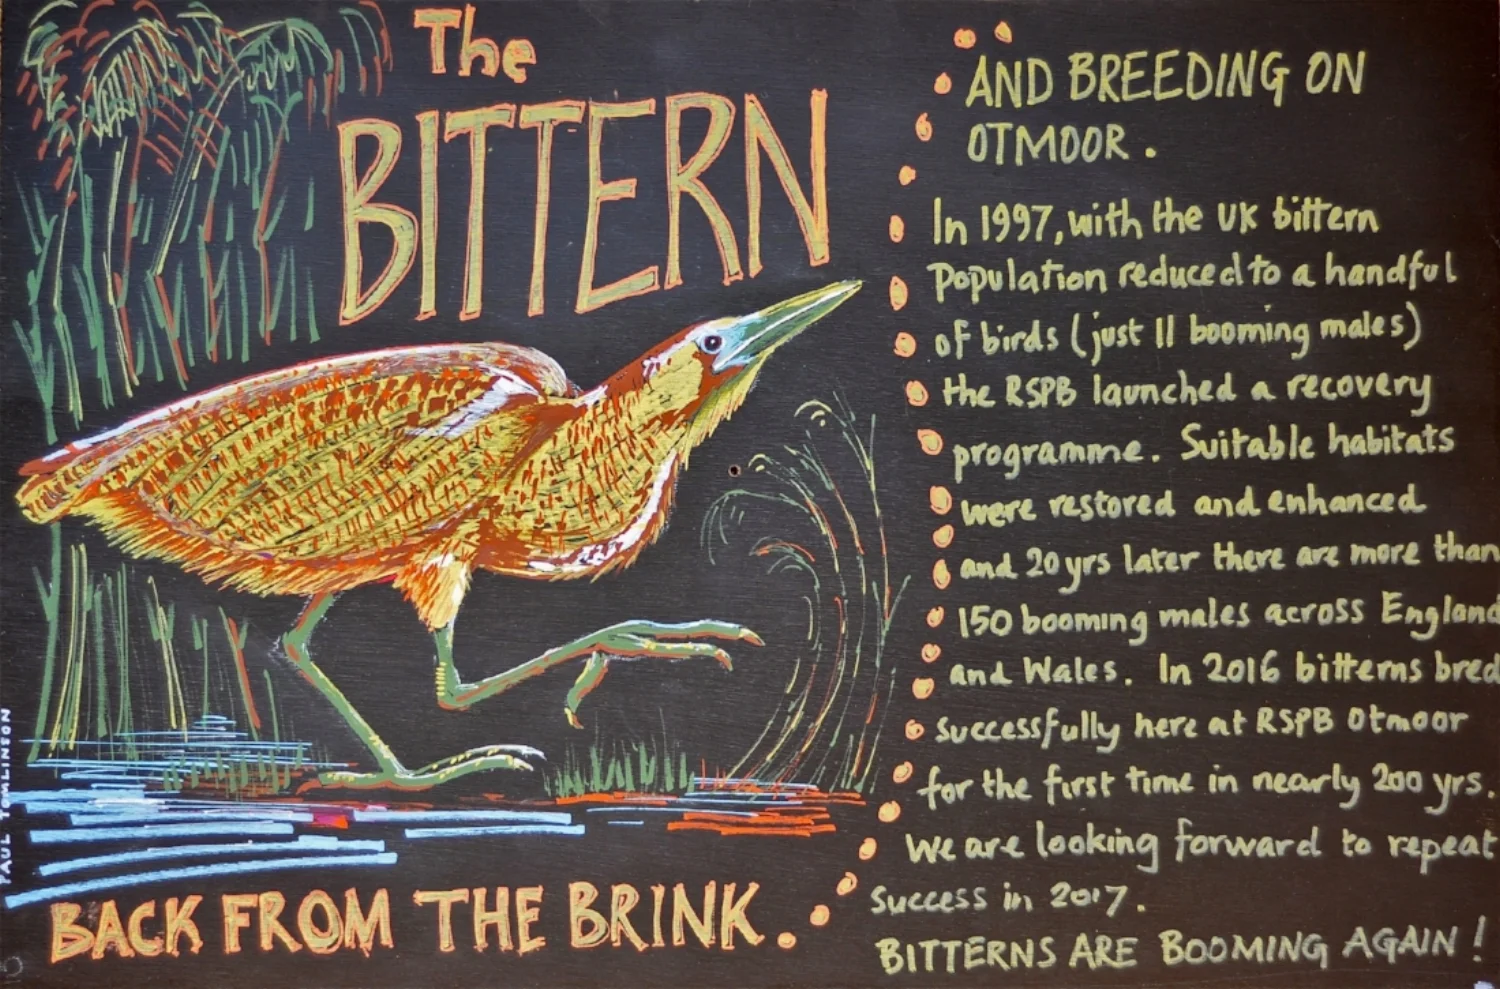 The
BITTERN
BACK FROM THE BRINK.
AND BREEDING ON
OTMOOR.
In 1997, with the UK bittern
Population reduced to a handful
of birds (just 11 booming males)
the RSPB launched a recovery
programme. Suitable habitats
were restored and enhanced
and 20 yrs later there are more than
150 booming males across England
and Wales. In 2016 bitterns bred
successfully here at RSPB Otmoor
for the first time in nearly 200 yrs.
We are looking forward to repeat
success in 2017.
BITTERNS ARE BOOMING AGAIN!
PAUL TOMLINSON